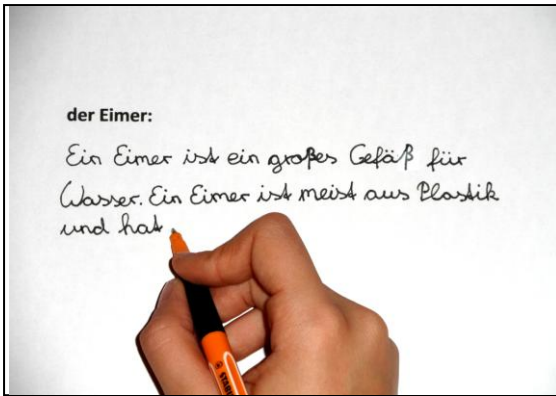 der Eimer:
Ein Eimer ist ein großes Gefäß für
Wasser. Ein Eimer ist meist aus Plastik
und hat
STABILO